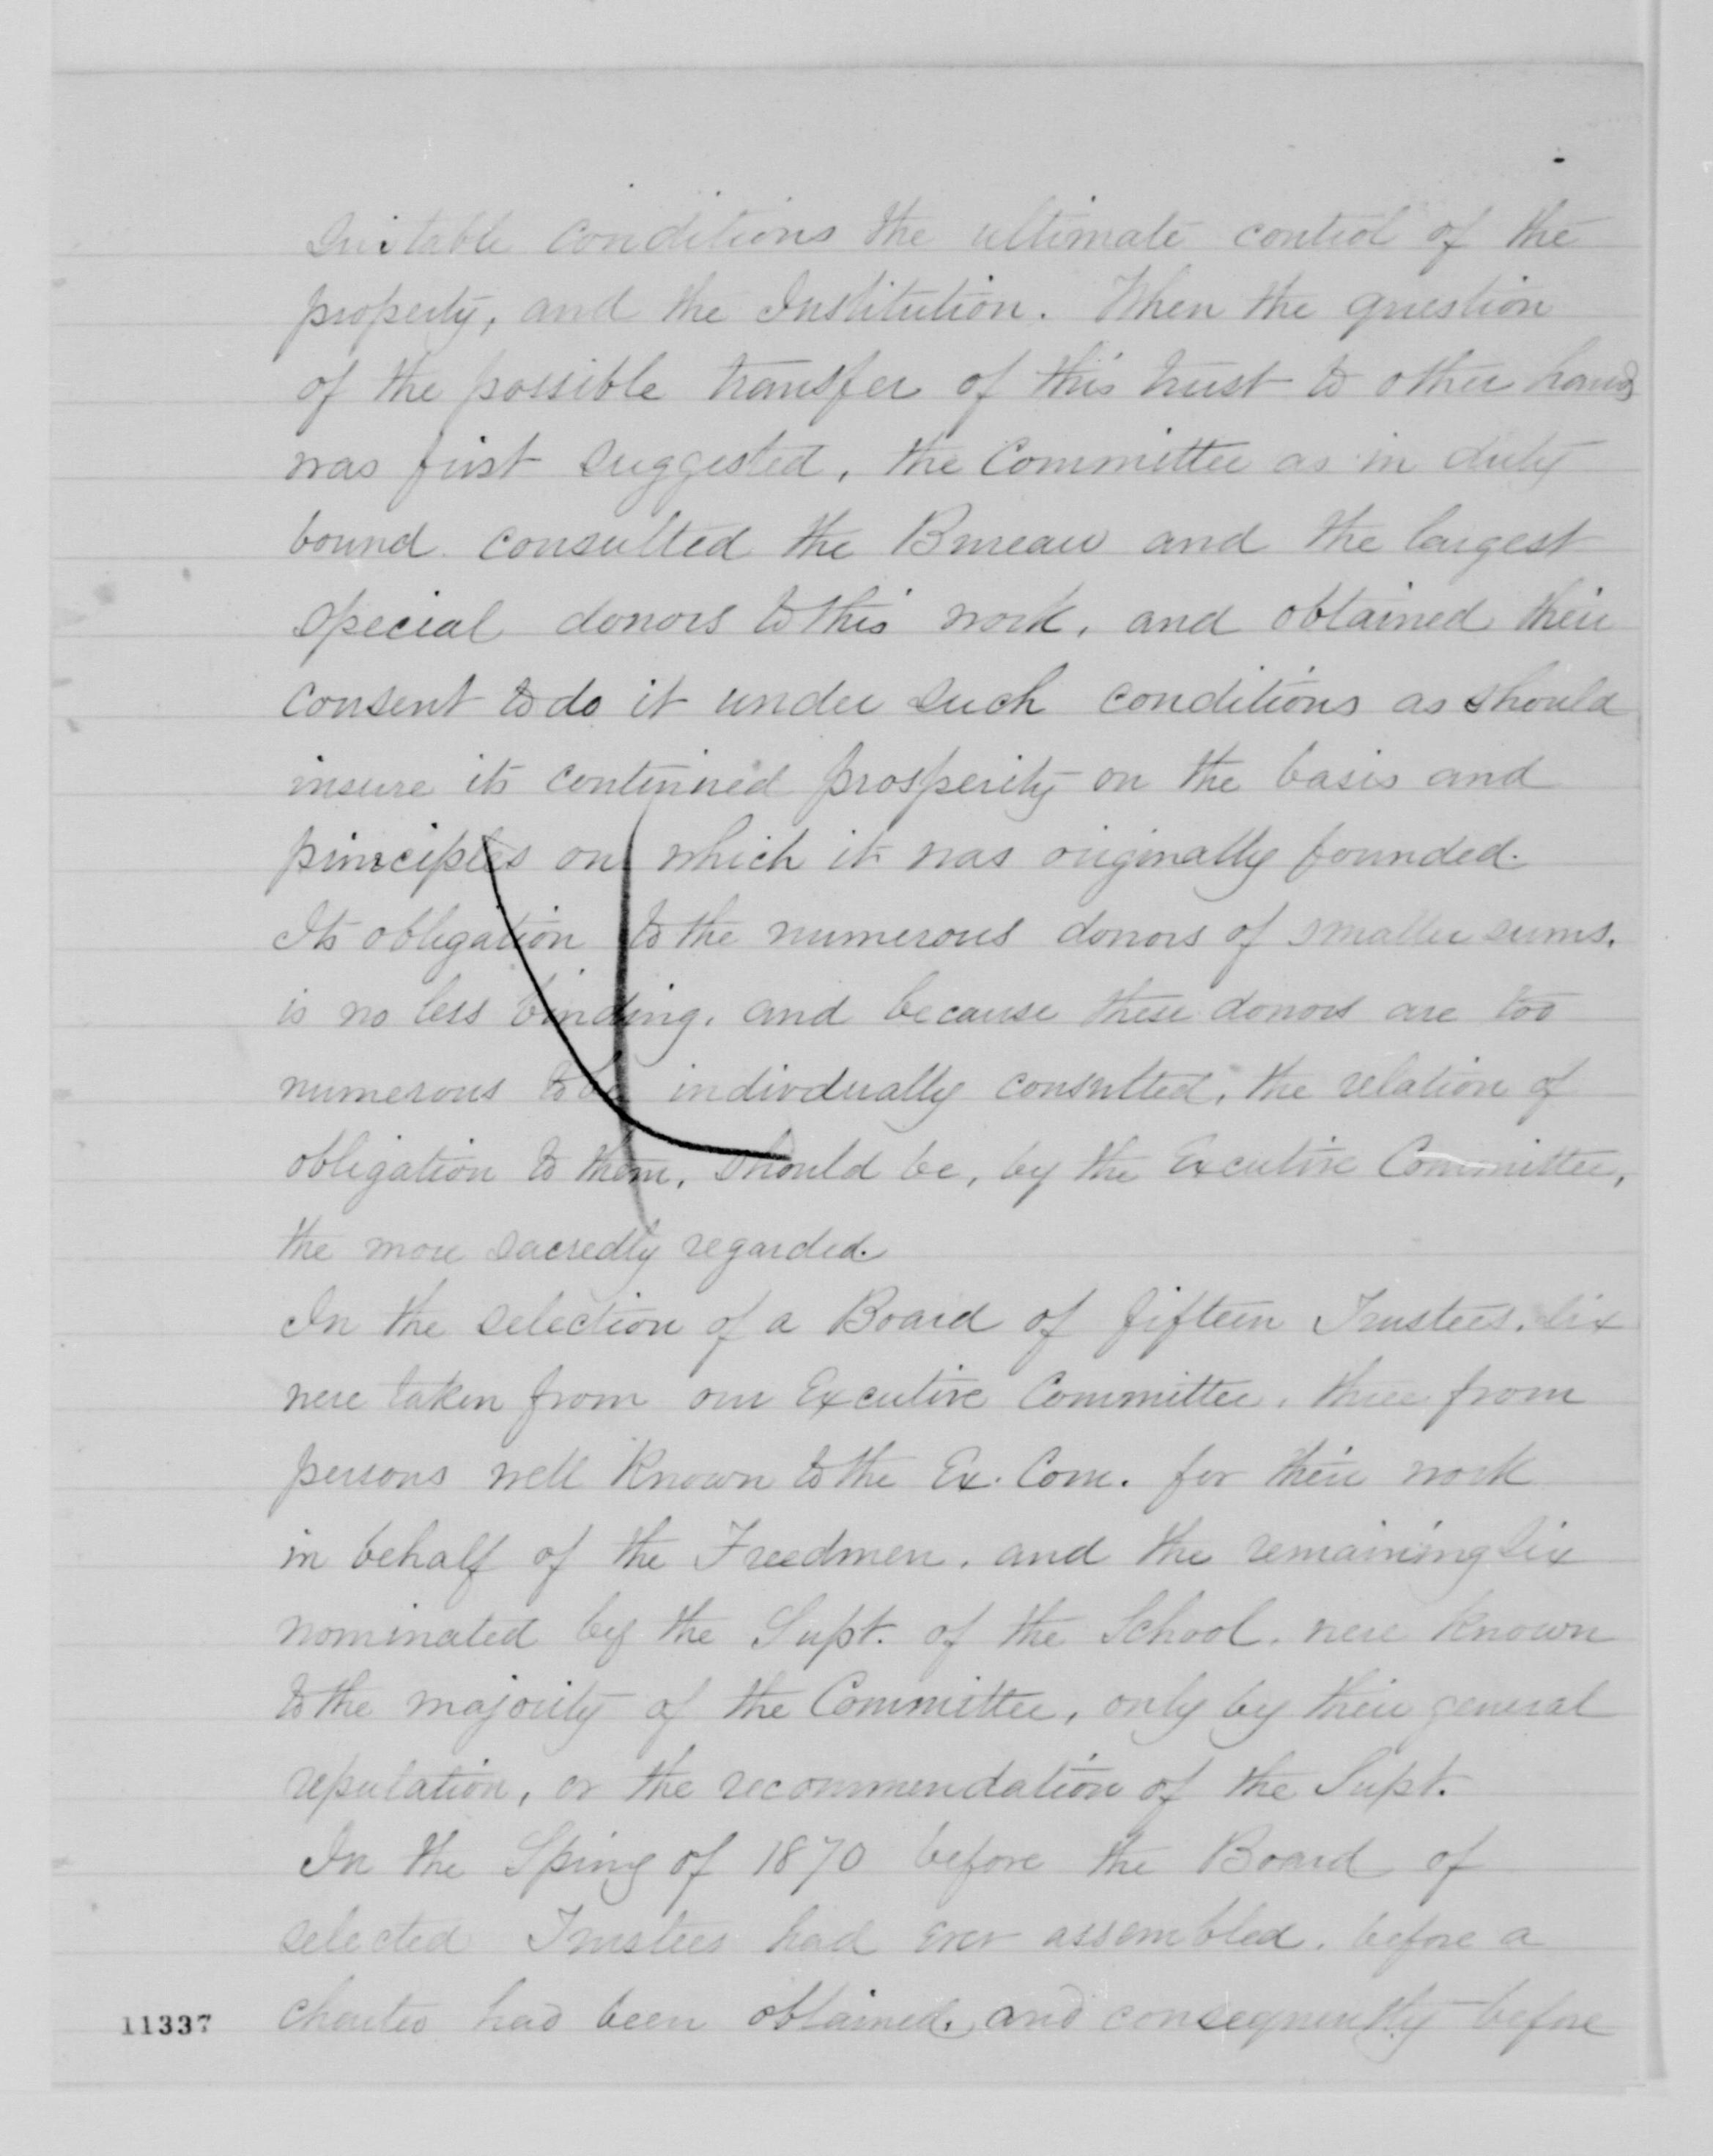 Suitable conditions the ultimate control of the
property, and the Institution. When the question
of the possible transfer of this trust to other hands
was first suggested, the Committee as in duty
bound consulted the Bureau and the largest
special donors to this work, and obtained their
consent to do it under such conditions as should
insure its continued prosperity on the basis and
principles on which it was originally founded.
Its obligation to the numerous donors of smaller sums,
is no less binding, and because these donors are too
numerous to be indivdually consulted, the relation of
obligation to them, should be, by the Executive Committee,
the more sacredly regarded.
In the selection of a Board of fifteen Trustees, six
were taken from our Executive Committee, three from
persons well known to the Ex. Com. for their work
in behalf of the Freedmen, and the remaining six
nominated by the Supt. of the School, were known
to the majority of the Committee, only by their general
reputation, or the recommendation of the Supt.
In the Spring of 1870 before the Board of
selected Trustees had ever assembled, before a
charter had been obtained, and consequently before
11337